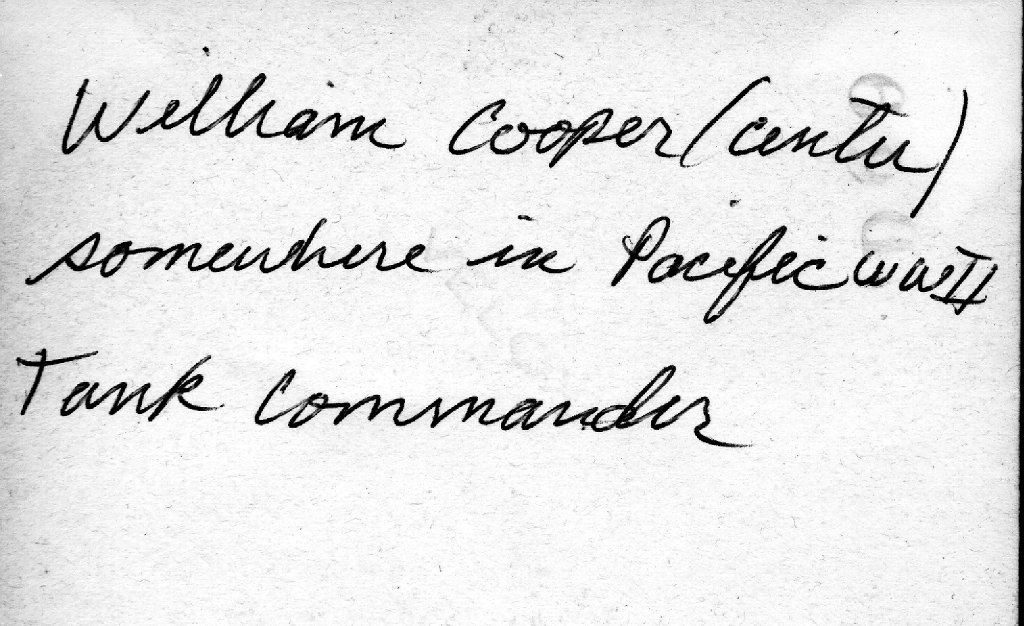 William Cooper (center)
somewhere in Pacific WWII
Tank Commander